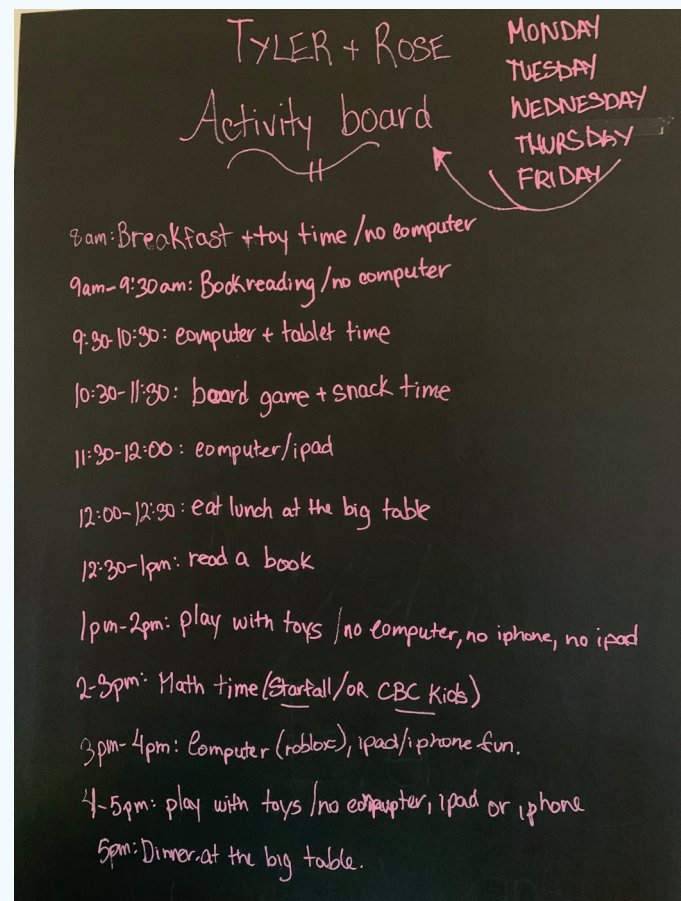 TYLER + ROSE
Activity board
MONDAY
TUESDAY
WEDNESDAY
THURSDAY
FRIDAY
8am: Breakfast + toy time / no computer
9am-9:30am: Bookreading / no computer
9:30-10:30: computer + tablet time
10:30-11:30: board game + snack time
11:30-12:00: computer/ipad
12:00-12:30: eat lunch at the big table
12:30-1pm: read a book
1pm-2pm: play with toys / no computer, no iphone, no ipad
2-3pm: Math time (Starfall/OR CBC Kids)
3pm-4pm: Computer (roblox), ipad/iphone fun.
4-5pm: play with toys / no computer, ipad or iphone
5pm: Dinner.at the big table.